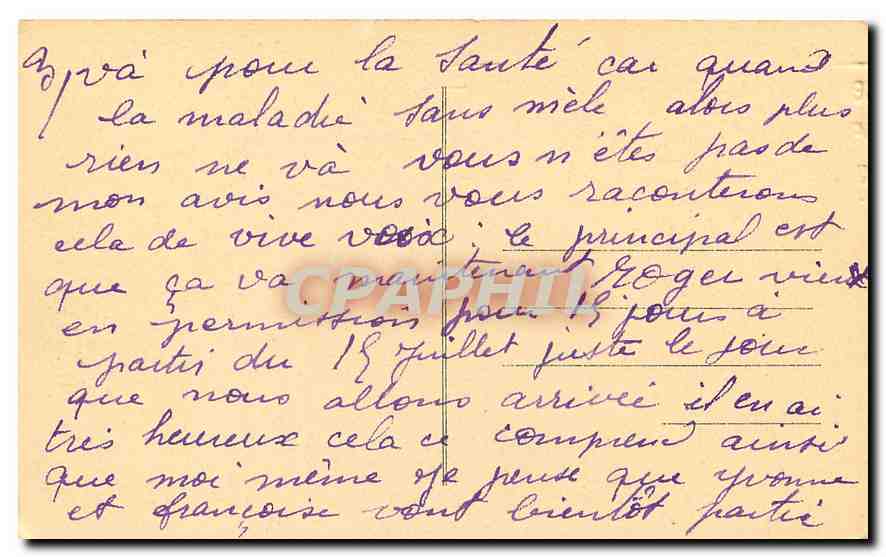 2) và pour la Santé car quand
la maladie sans mèle alors plus
rien ne và vous n'êtes pas de
mon avis nous vous raconterons
cela de vive voix ; le principal est
que ça va maintenant Roger vient
en permission pour 15 jours à
partir du 15 Juillet juste le jour
que nous allons arrivée il en ai
très heureux cela ce comprend ainsi
que moi même je pense que yvonne
et françoise vont bientôt partir
CPAPHIL